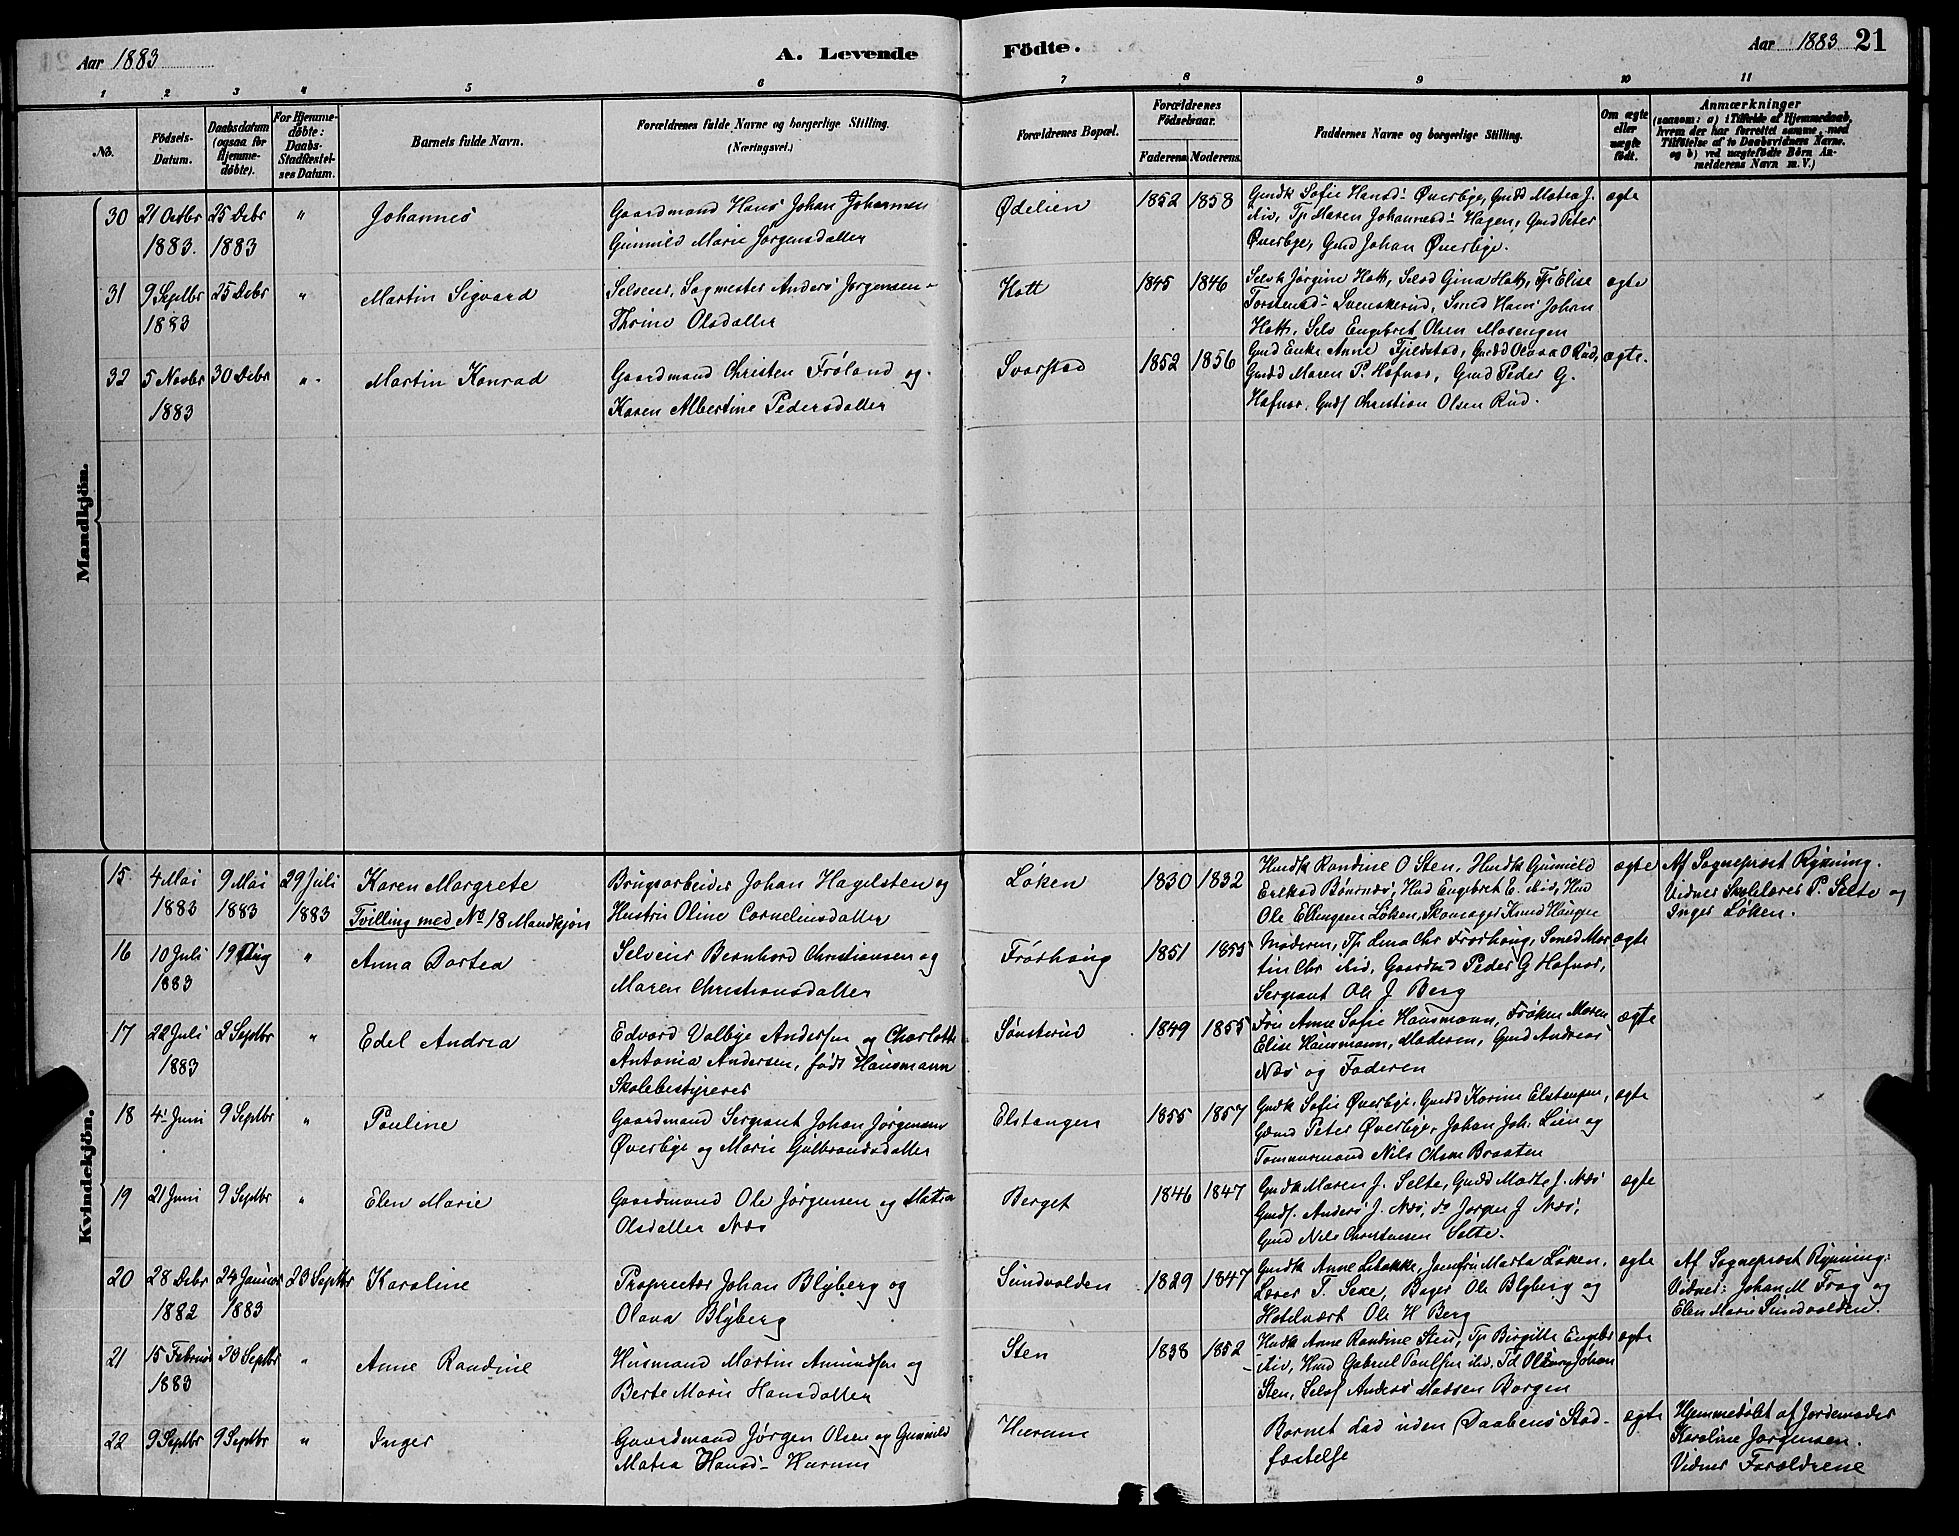 Aar 1883
A. Levende Födte.
Aar 1883 21
1 2 3 4 5 6 7 8 9 10 11
No.
Födsels-Datum.
Daabsdatum (ogsaa for Hjemmedøbte).
For Hjemmedøbte: Daabs-Stadfæstelses Datum.
Barnets fulde Navn.
Forældrenes fulde Navne og borgerlige Stilling.
(Næringsvei.)
Forældrenes Bopæl.
Forældrenes Födselsaar.
Faderens. Moderens.
Faddernes Navne og borgerlige Stilling.
Om ægte eller uægte födt.
Anmærkninger
(saasom: a) i Tilfælde af Hjemmedaab, hvem der har forrettet samme, med Tilföielse af to Daabsvidners Navne. og b) ved uægtefödte Börn Anmelderens Navn m. V.)
Mandkjön.
30 21 Octbr 25 Debr " Johannes Gaardmand Hans Johan Johannesen Ødelien 1852 1858 Gmdk Sofie Hansd- Øverbye, Gmdd Matea J. ægte
1883. 1883 Gunnild Marie Jørgensdatter ibiv, Tp Maren Johannesd- Hagen, Gmd Peter
Øverbye, Gmd Johan Øverbye.
31 9 Septbr 25 Debr " Martin Sigvard Selveier, Sagmester Anders Jørgensen - Hott 1845 1846 Selvk Jørgine Hott, Selvd Gina Hott, Tp Elise ægte
1883 Thrine Olsdatter Torstensd- Svenskerud, Smed Hans Johan
Hott, Selv Engebret Olsen Mosengen
32 5 Novbr 30 Debr " Martin Konrad Gaardmand Christen Frøland og Svarstad 1852 1856 Gmd Enke Anne Fjeldstad, Gmdd Olava O Rud, ægte.
1883 Karen Albertine Pedersdatter Gmdd Maren P. Hafnor, Gmd Peder G.
Hafnor, Gmds Christian Olsen Rud.
Kvindekjön.
15 4 Mai 9 Mai 29 Juli Karen Margrete Brugsarbeider Johan Hagelsten og Løken 1830 1832 Husdk Randine O Sten, Husdk Gunnild ægte Af Sogneprest Rynning.
1883 1883 1883 Tvilling med No 18 Mandkjøn Hustru Oline Corneliusdatter Erlksd Bönsnæs, Hmd Engebret E. ibid, Hmd Vidner Skolelærer P. Selte og
Ole Ellingsen Løken, Skomager Knud Haugen Inger Løken.
16 10 Juli 19 Aug " Anna Dortea Selveier Bernhard Christiansen og Frøshaug 1851 1855 Moderen, Tp Lina Chr Frøshaug, Smed Mar ægte
1883 Maren Christiansdatter tin Chr ibid, Gaardmd Peder G Hafnor,
Sergeant Ole J Berg
17 22 Juli 2 Septbr " Edel Andrea Edvard Valbye Andersen og Charlotte Sønsterud 1849 1855 Fru Anne Sofie Hausmann, Frøken Maren ægte
1883 Antonia Andersen, født Hausmann Elise Hausmann, Moderen, Gmd Andreas
Skolebestyrer Næs og Faderen
18 4 Juni 9 Septbr " Pauline Gaardmand Sergeant Johan Jørgensen Elstangen 1855 1857 Gmdk Sofie Øverbye, Gmdd Karine Elstangen, ægte
Øverbye og Marie Gulbrandsdatter Gmd Peter Øverbye, Johan Joh. Lien og
Tømmermand Nils Olsen Braaten
19 21 Juni 9 Septbr " Elen Marie Gaardmand Ole Jørgensen og Mattea Berget 1846 1847 Gmdk Maren J. Selte, Gmdd Marte J. Næs ægte
Olsdatter Næs Gmds. Anders J. Næs, do Jørgen J Næs,
Gmd Nils Christensen Selte.
20 28 Debr 24 Januar 23 Septbr Karoline Proprietær Johan Blyberg og Sundvolden 1829 1847 Gmdk Anne Libakke, Jomfru Marta Løken, ægte Af Sogneprest Rynning:
1882 1883 Olava Blyberg Lærer T. Seke, Bager Ole Blyberg og Vidner: Johan M Frog og
Hotelvært Ole H Berg Elen Marie Sundvolden.
21 15 Februar 23 Septbr " Anne Randine Husmand Martin Amundsen og Sten 1838 1852 Husdk Anne Randine Sten, Tp Birgitte Engebr ægte
1883 Berte Marie Hansdatter ibiv, Hmd Gabriel Paulsen ibv, Td Johan
Sten, Selvs Anders Madsen Borgen
22 9 Septbr 9 Septbr " Inger Gaardmand Jørgen Olsen og Gunnild Hurum Barnet død uden Daabens Stad- ægte Hjemmedøbt af Jordemoder
Matea Hansd- Hurum fæstelse Karoline Jørgensen.
Vidner Forældrene